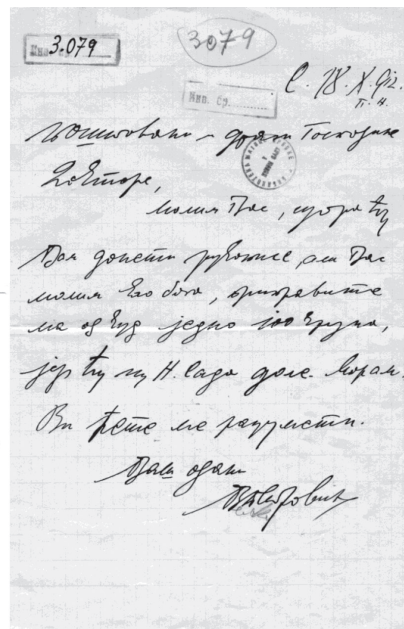 Инв. бр. 3.079
3079
Инв. бр.
С. 18. X. 912.
П. Н.
Поштовани – драги Господине
Докторе,
молим Вас, сутра ћу
Вам донети рукопис, али Вас
молим као бога, приправите
ма одкуд једно 100 круна,
јер ћу из Н. Сада доле. Морам.
Ви ћете ме разумети.
Ваш одани